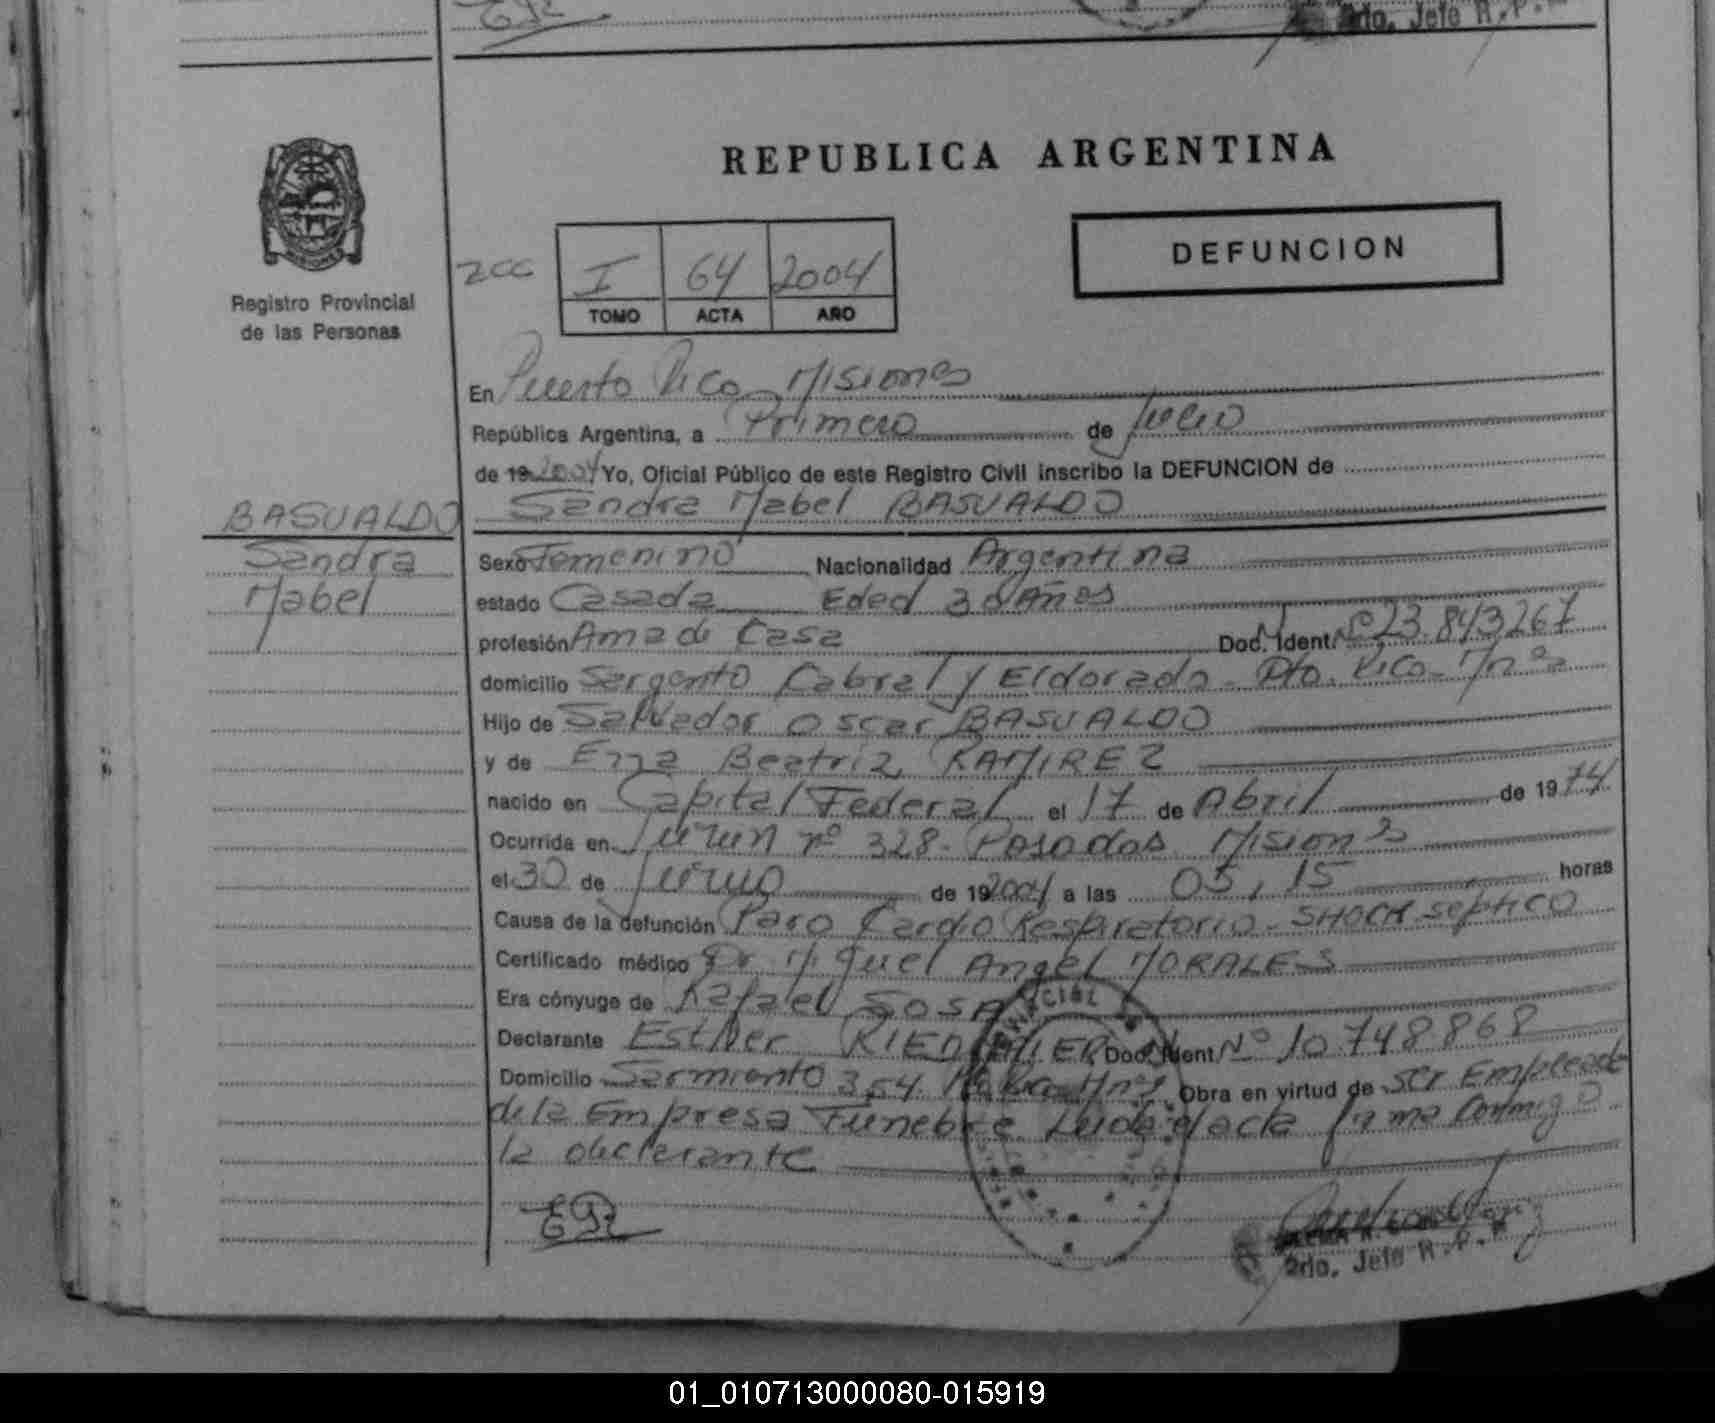 2do. Jefe R.P.
REPUBLICA ARGENTINA
DEFUNCION
Registro Provincial
de las Personas
I 64 2004
TOMO ACTA AÑO
En Puerto Rico Misiones
República Argentina, a Primero de Julio
de 19 2004 Yo, Oficial Público de este Registro Civil inscribo la DEFUNCION de
Sandra Mabel BASUALDO
BASUALDO
Sandra
Mabel
Sexo Femenino Nacionalidad Argentina
estado Casada Edad 30 Años
profesión Ama de Casa Doc. Ident. 23.843.267
domicilio Sargento Cabral y Eldorado - Pto. Rico - Mnes
Hijo de Salvador Oscar BASUALDO
y de Beatriz RAMIREZ
nacido en Capital Federal el 17 de Abril de 1974
Ocurrida en Junin nº 328 - Posadas Misiones
el 30 de Junio de 19 2004 a las 05,15 horas
Causa de la defunción Paro Cardio Respiratorio - SHOCK septico
Certificado médico Dr. Miguel Angel MORALES
Era cónyuge de Rafael SOSA
Declarante Esther Doc. Ident. Nº 10.748.868
Domicilio Sarmiento 354 Obra en virtud de ser Empleada
de la Empresa Funebre firma conmigo
la declarante
2do. Jefe R.P.P
01_010713000080-015919